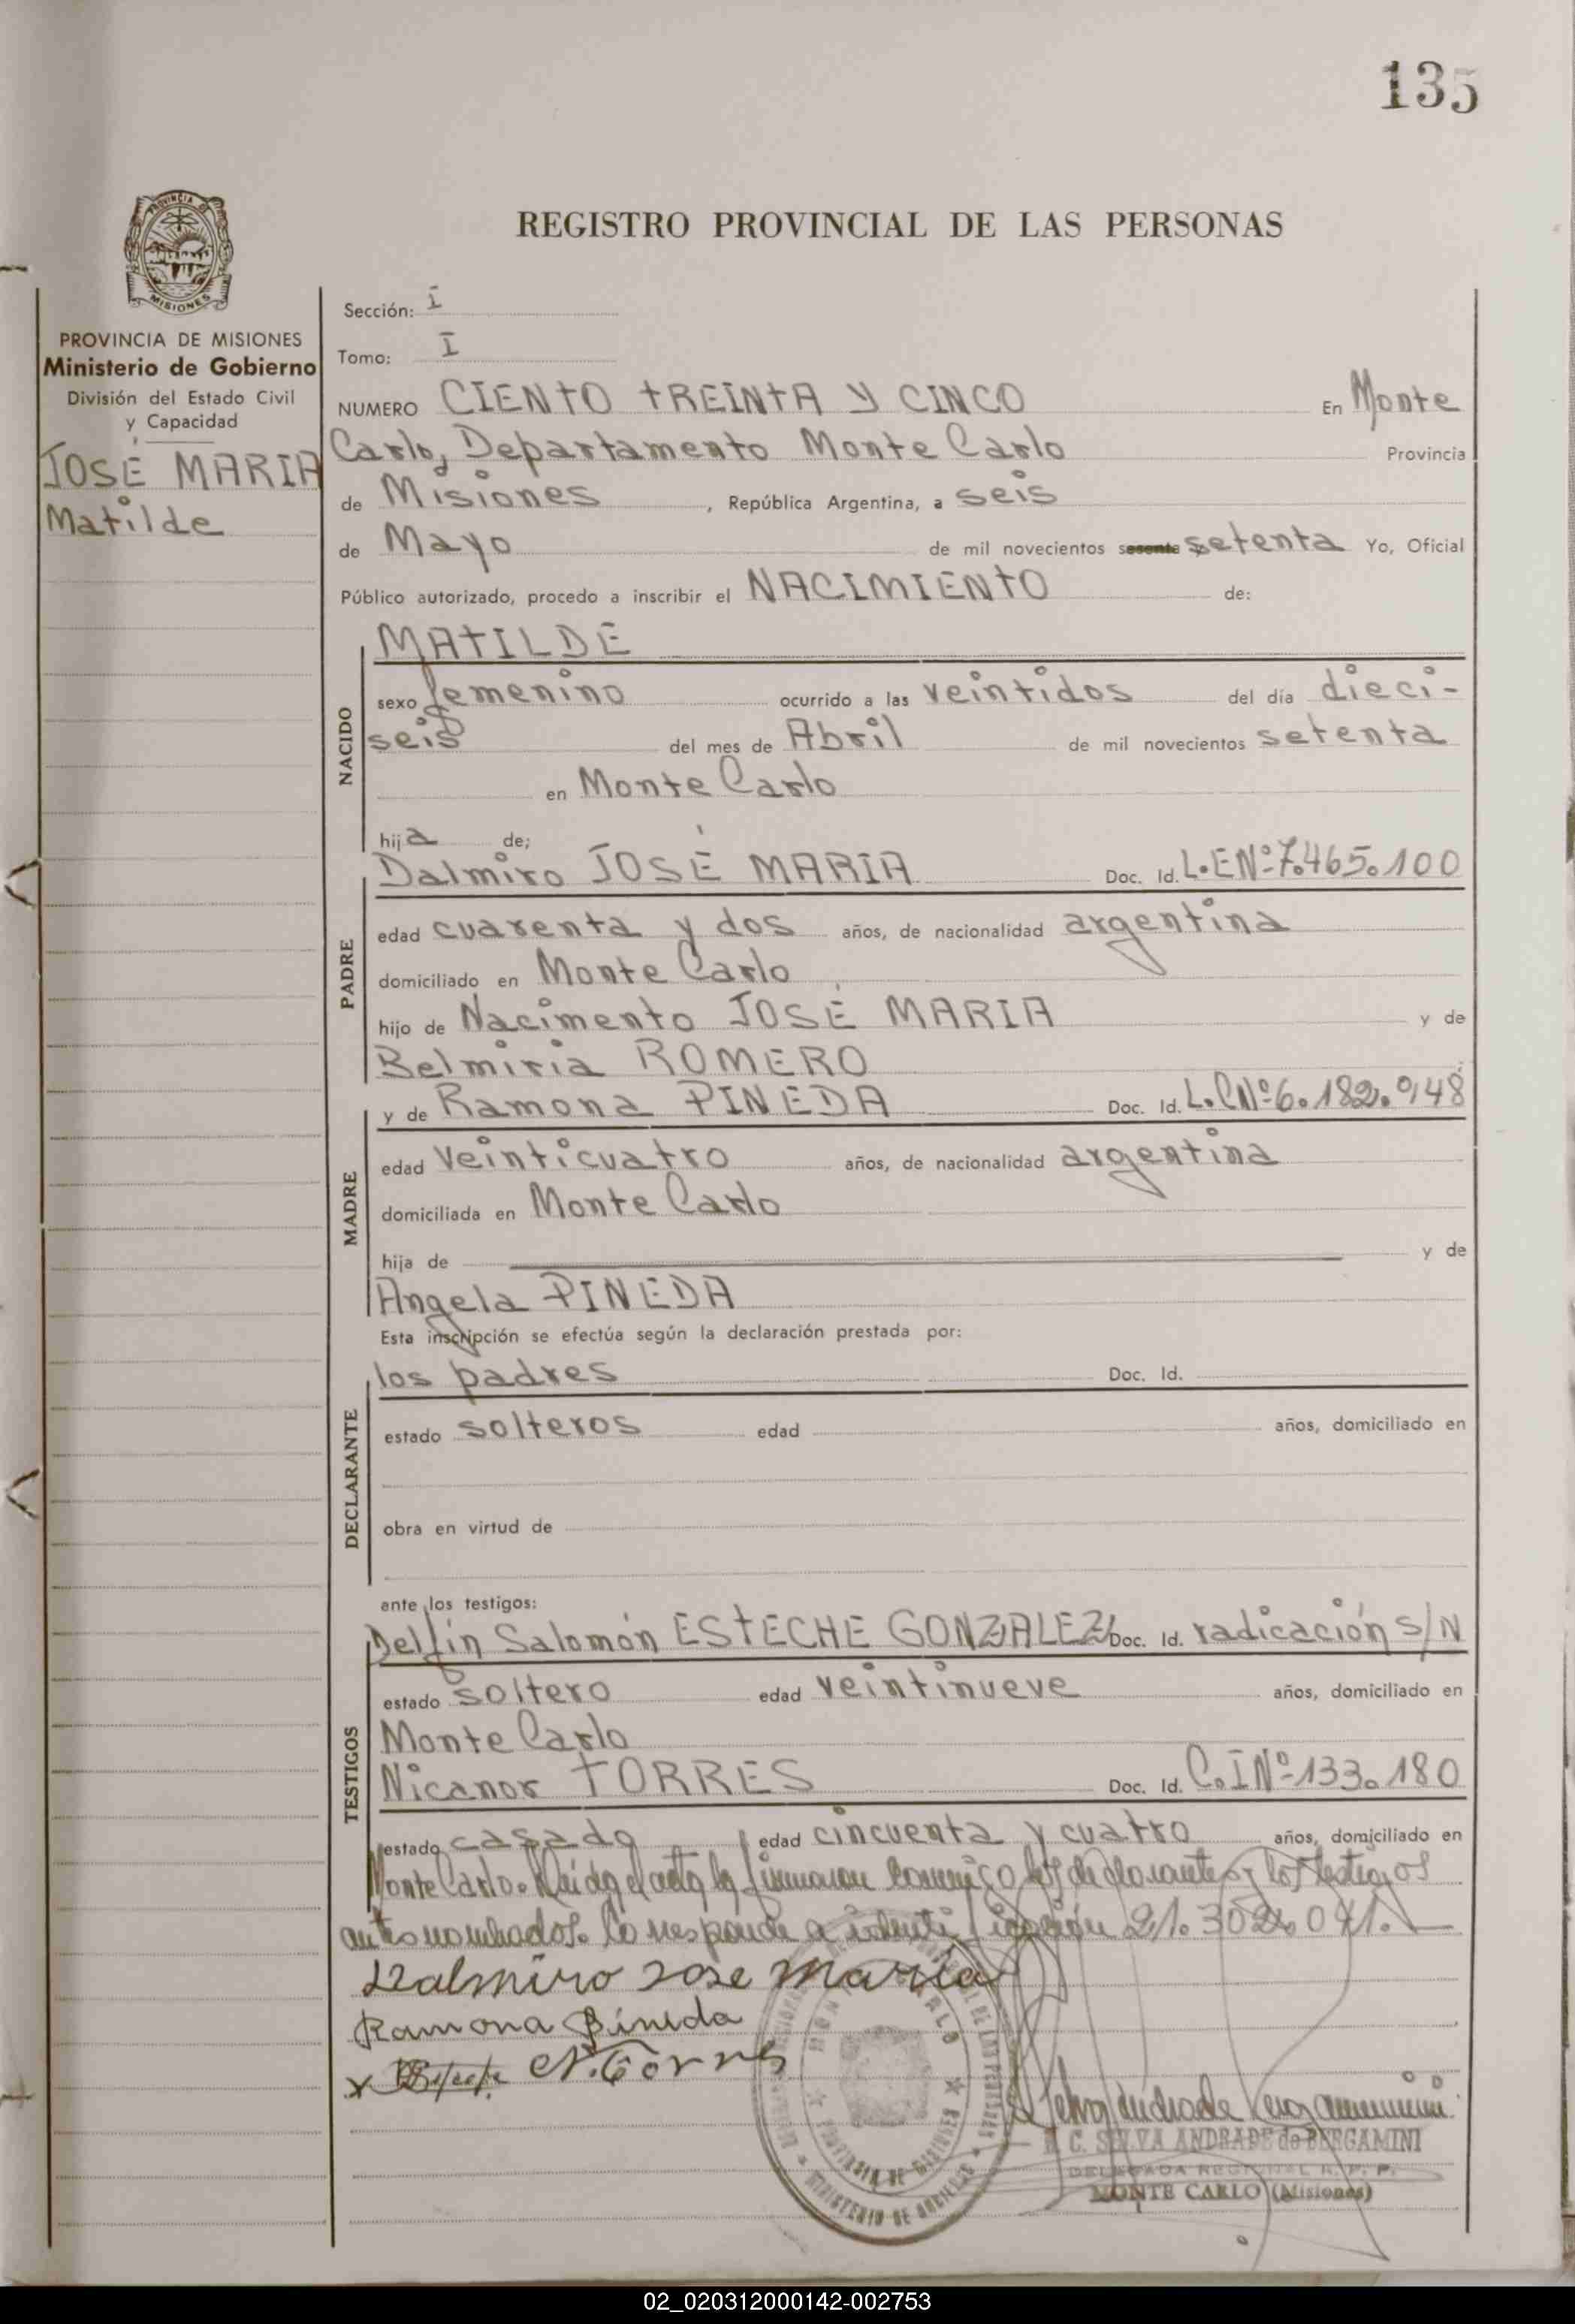 135
PROVINCIA DE MISIONES
REGISTRO PROVINCIAL DE LAS PERSONAS
PROVINCIA DE MISIONES
Ministerio de Gobierno
División del Estado Civil
y Capacidad
JOSÉ MARIA
Matilde
Sección: I
Tomo: I
NUMERO CIENTO TREINTA Y CINCO En Monte
Carlo, Departamento Monte Carlo Provincia
de Misiones, República Argentina, a seis
de Mayo de mil novecientos sesenta setenta Yo, Oficial
Público autorizado, procedo a inscribir el NACIMIENTO de:
NACIDO
MATILDE
sexo femenino ocurrido a las veintidos del día dieci-
seis del mes de Abril de mil novecientos setenta
en Monte Carlo
hija de;
PADRE
Dalmiro JOSÉ MARIA Doc. Id. L.E Nº 7.465.100
edad cuarenta y dos años, de nacionalidad argentina
domiciliado en Monte Carlo
hijo de Nacimento JOSÉ MARIA y de
Belmiria ROMERO
MADRE
y de Ramona PINEDA Doc. Id. L.C Nº 6.182.948
edad veinticuatro años, de nacionalidad argentina
domiciliada en Monte Carlo
hija de y de
Angela PINEDA
Esta inscripción se efectúa según la declaración prestada por:
DECLARANTE
los padres Doc. Id.
estado solteros edad años, domiciliado en
obra en virtud de
ante los testigos:
TESTIGOS
Delfín Salomón ESTECHE GONZALEZ Doc. Id. radicación S/N
estado soltero edad veintinueve años, domiciliado en
Monte Carlo
Nicanor TORRES Doc. Id. C.I Nº 133.180
estado casado edad cincuenta y cuatro años, domiciliado en
Monte Carlo. Leida el acta la firmaron conmigo los declarantes y los testigos
antes nombrados. Corresponde a identificación 21.302.041.
Dalmiro Jose Maria
Ramona Pineda
N. Torres
MONTE CARLO
PROVINCIA DE MISIONES
MINISTERIO DE GOBIERNO
C. SELVA ANDRADE de BERGAMINI
DELEGADA REGIONAL R. P. P.
MONTE CARLO (Misiones)
02_020312000142-002753